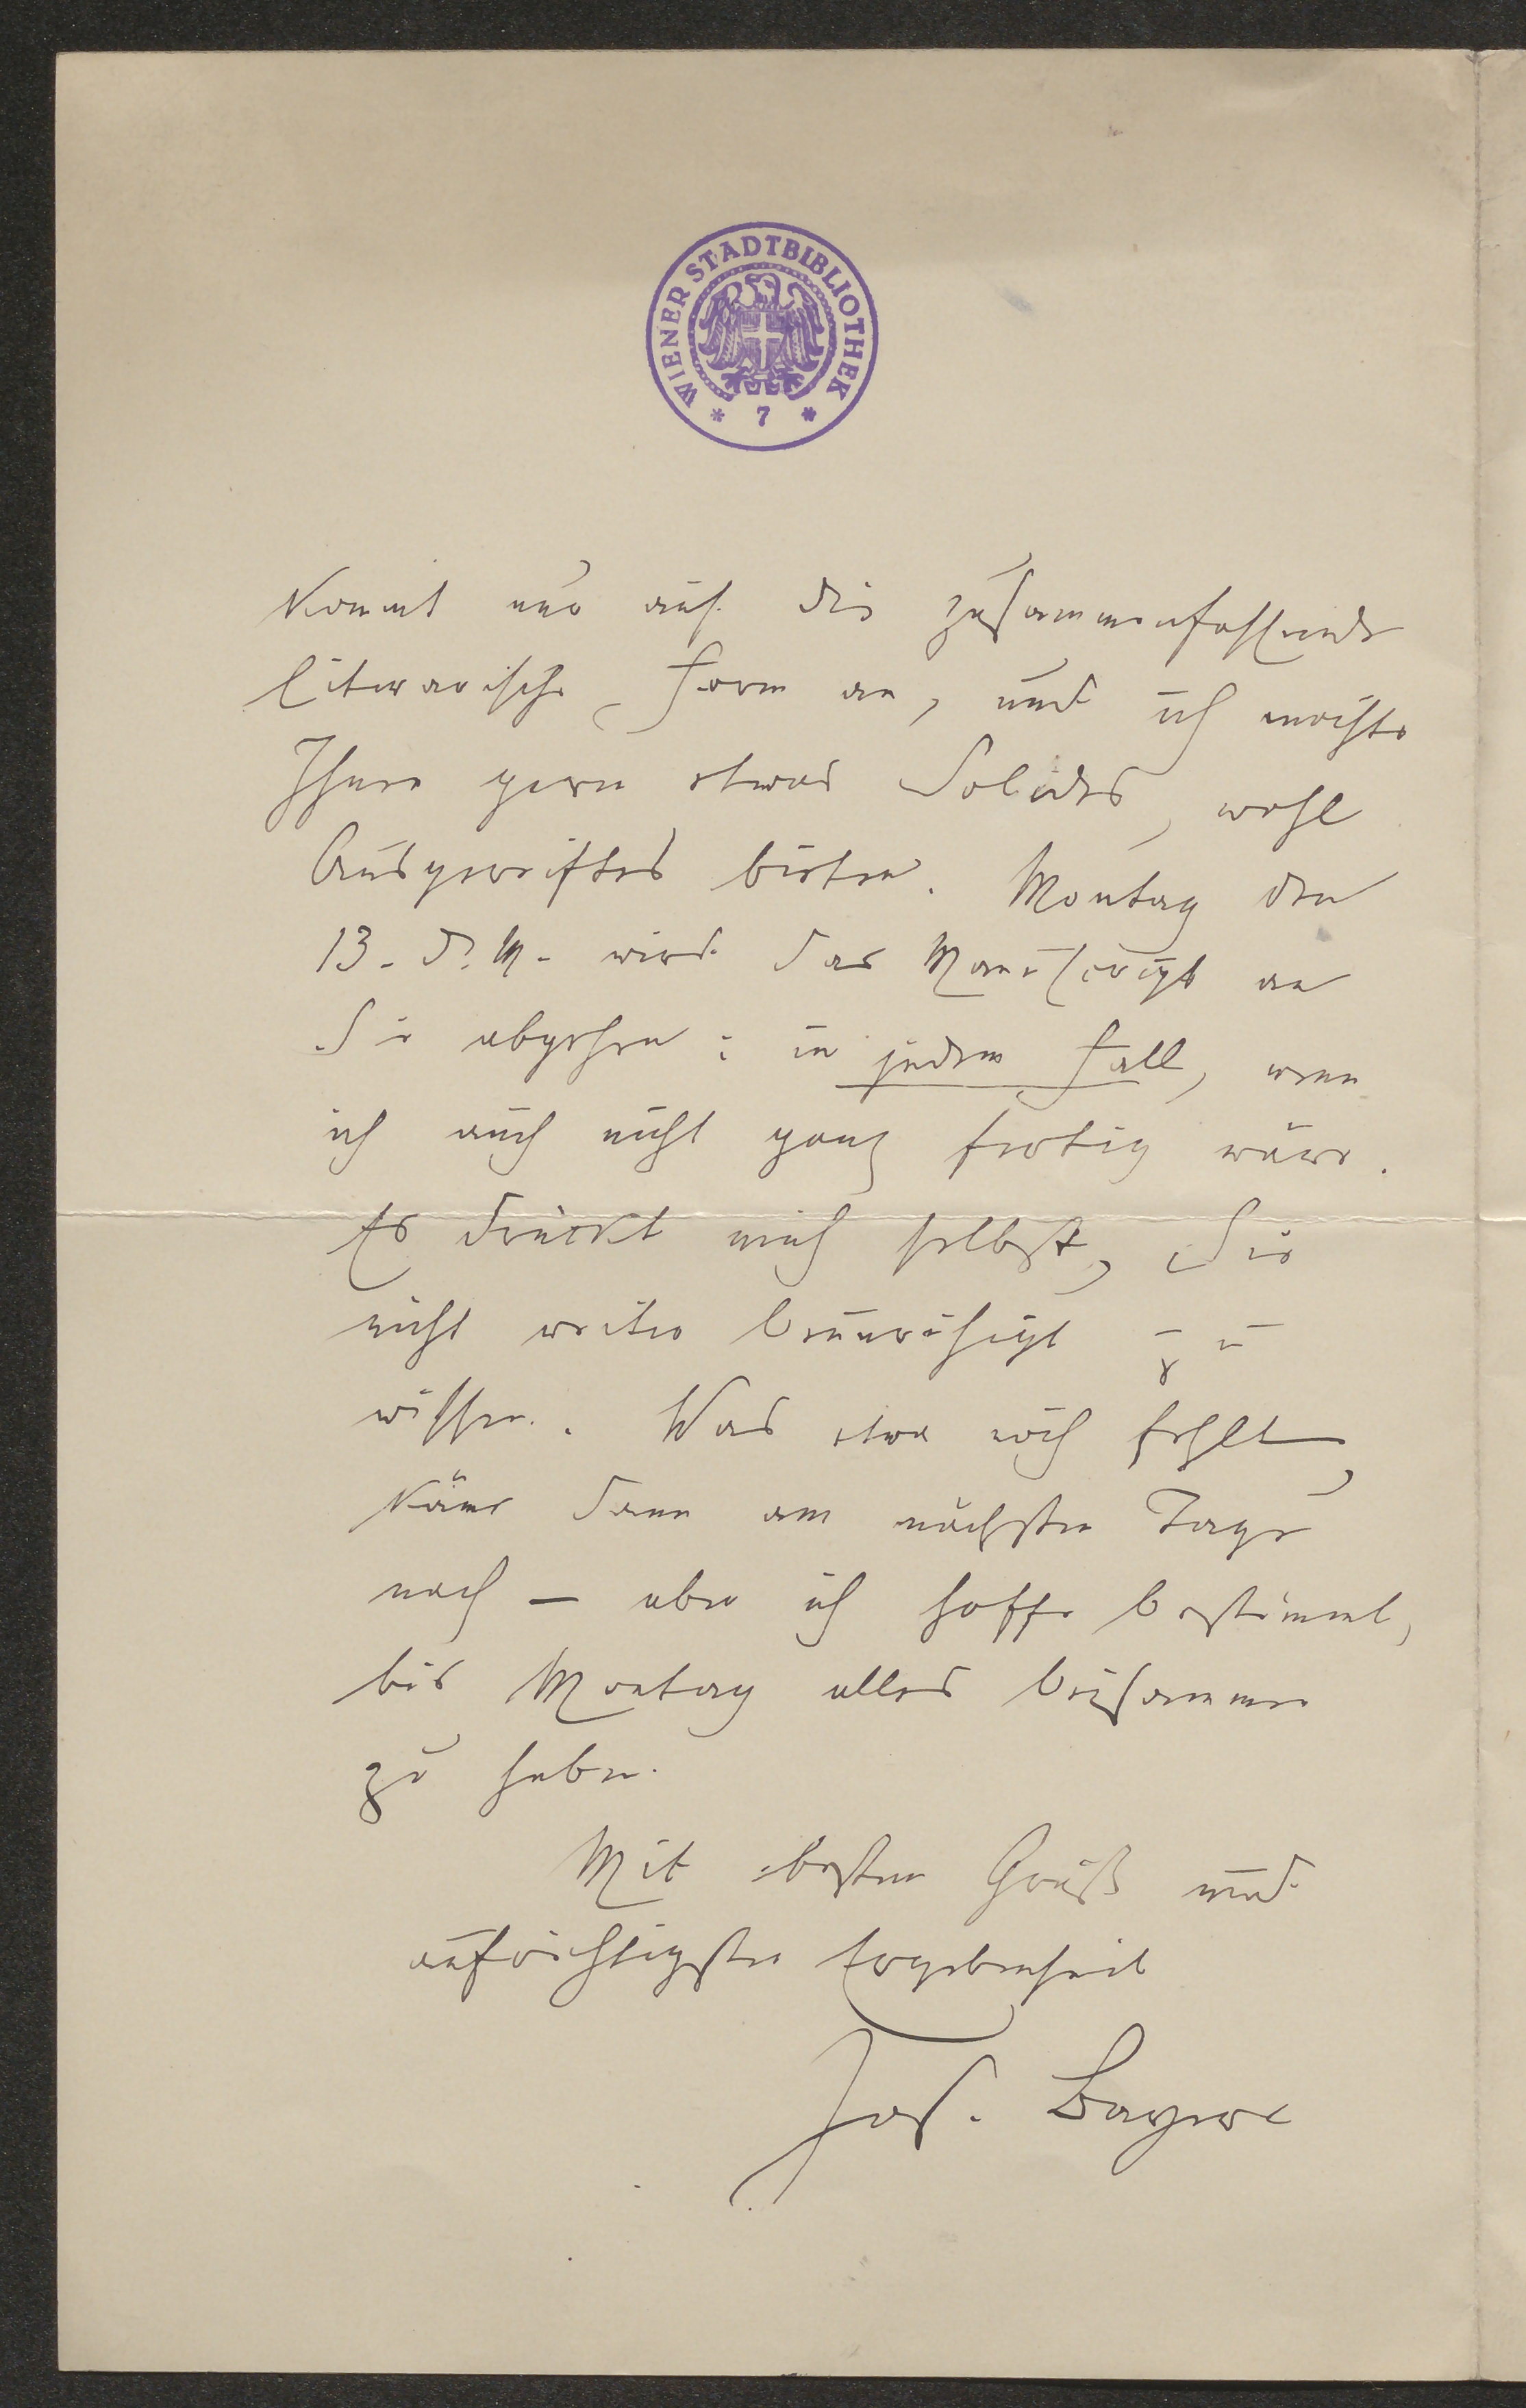 WIENER STADTBIBLIOTHEK
* 7 *
kommt nur auf die zusammenfassende
literarische Form an, und ich möchte
Ihnen gern etwas Solides, wohl
Ausgereiftes bieten. Montag den
13. d. M. wird das Manuscript an
Sie abgehen: in jedem Fall, wenn
ich auch nicht ganz fertig wäre.
Es drückt mich selbst, Sie
nicht weiter beunruhigt zu
wissen. Was etwa noch fehlt,
käme dann am nächsten Tage
nach – aber ich hoffe bestimmt,
bis Montag alles beisammen
zu haben.
Mit bestem Gruß und
aufrichtigster Ergebenheit
Jos. Bayer